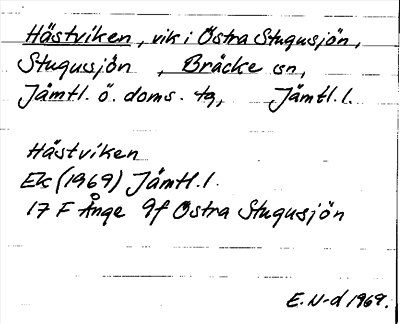 Hästviken, vik i Östra Stugusjön,
Stugusjön, Bräcke sn,
Jämtl. ö. doms. tg, Jämtl. l.
Hästviken
Ek (1969) Jämtl. l.
17 F Ånge 9f Östra Stugusjön
E. N-d 1969.